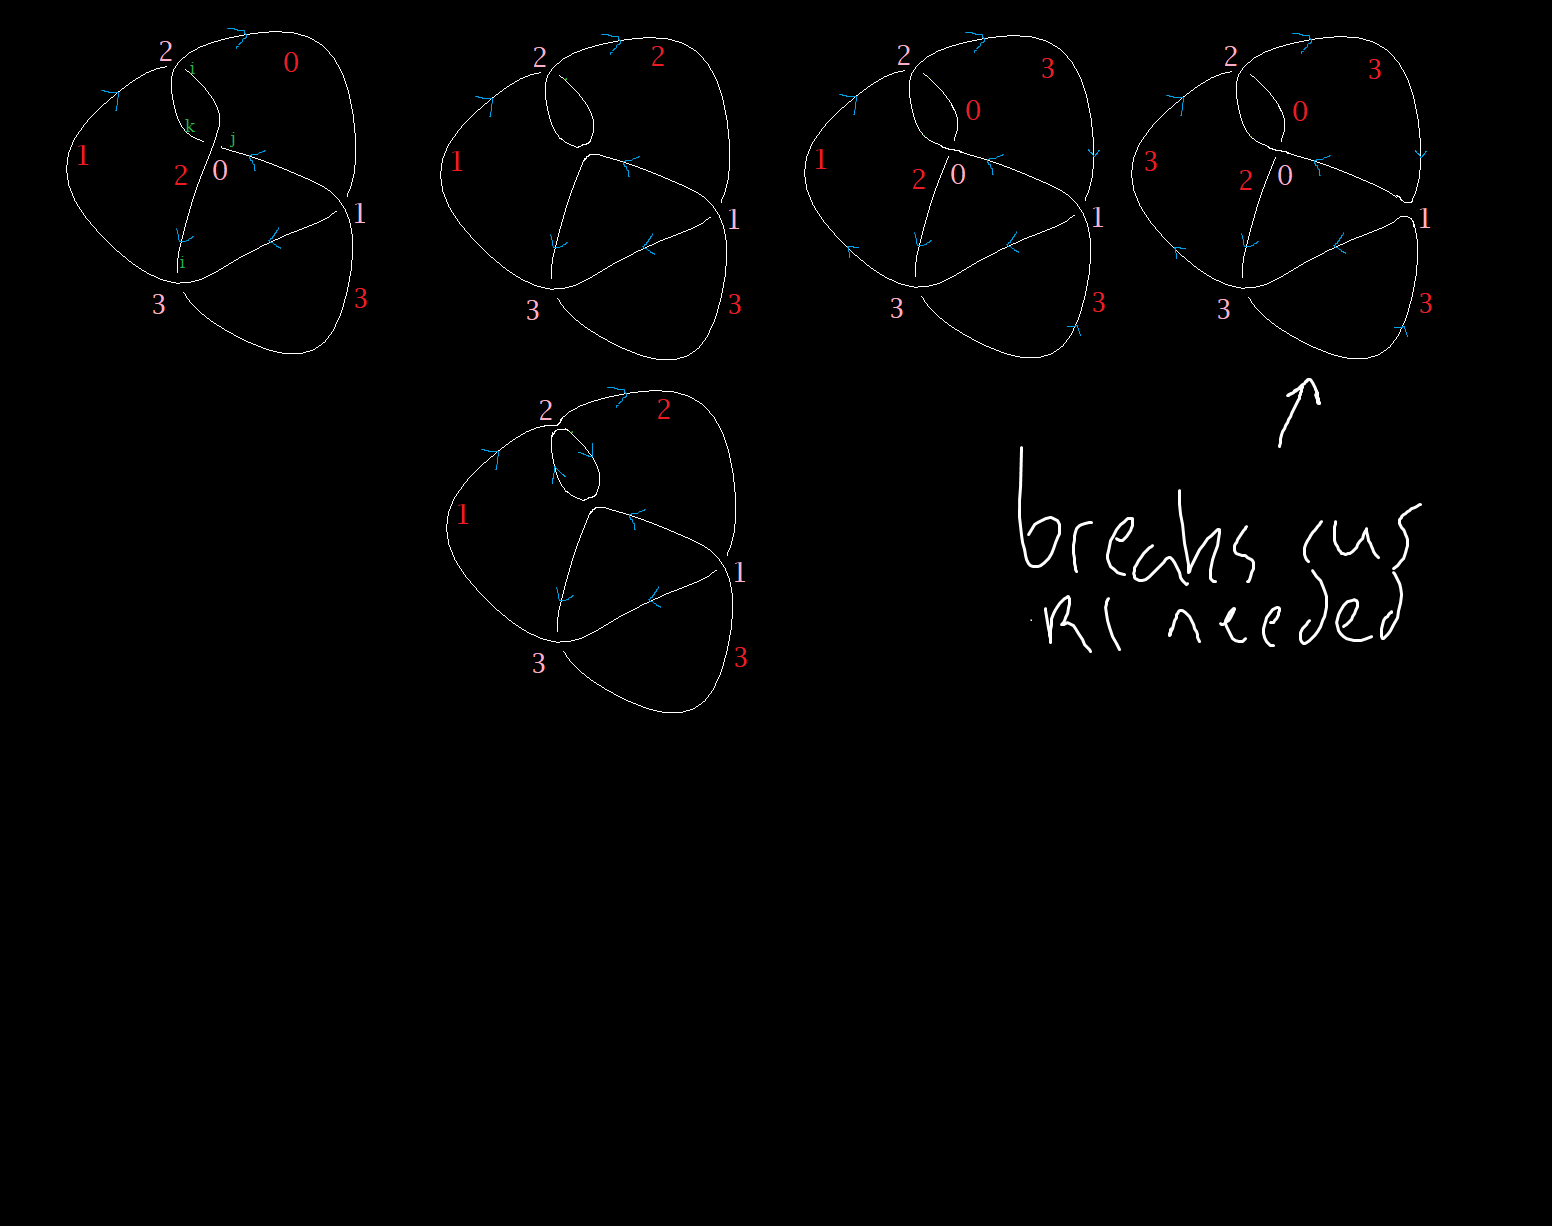 2
0
i
k
j
1
2
0
1
i
3
3
2
2
1
1
3
3
2
3
0
1
2
0
1
3
3
2
3
0
3
2
0
1
3
3
2
2
1
1
3
3
breaks cus
R1 needed